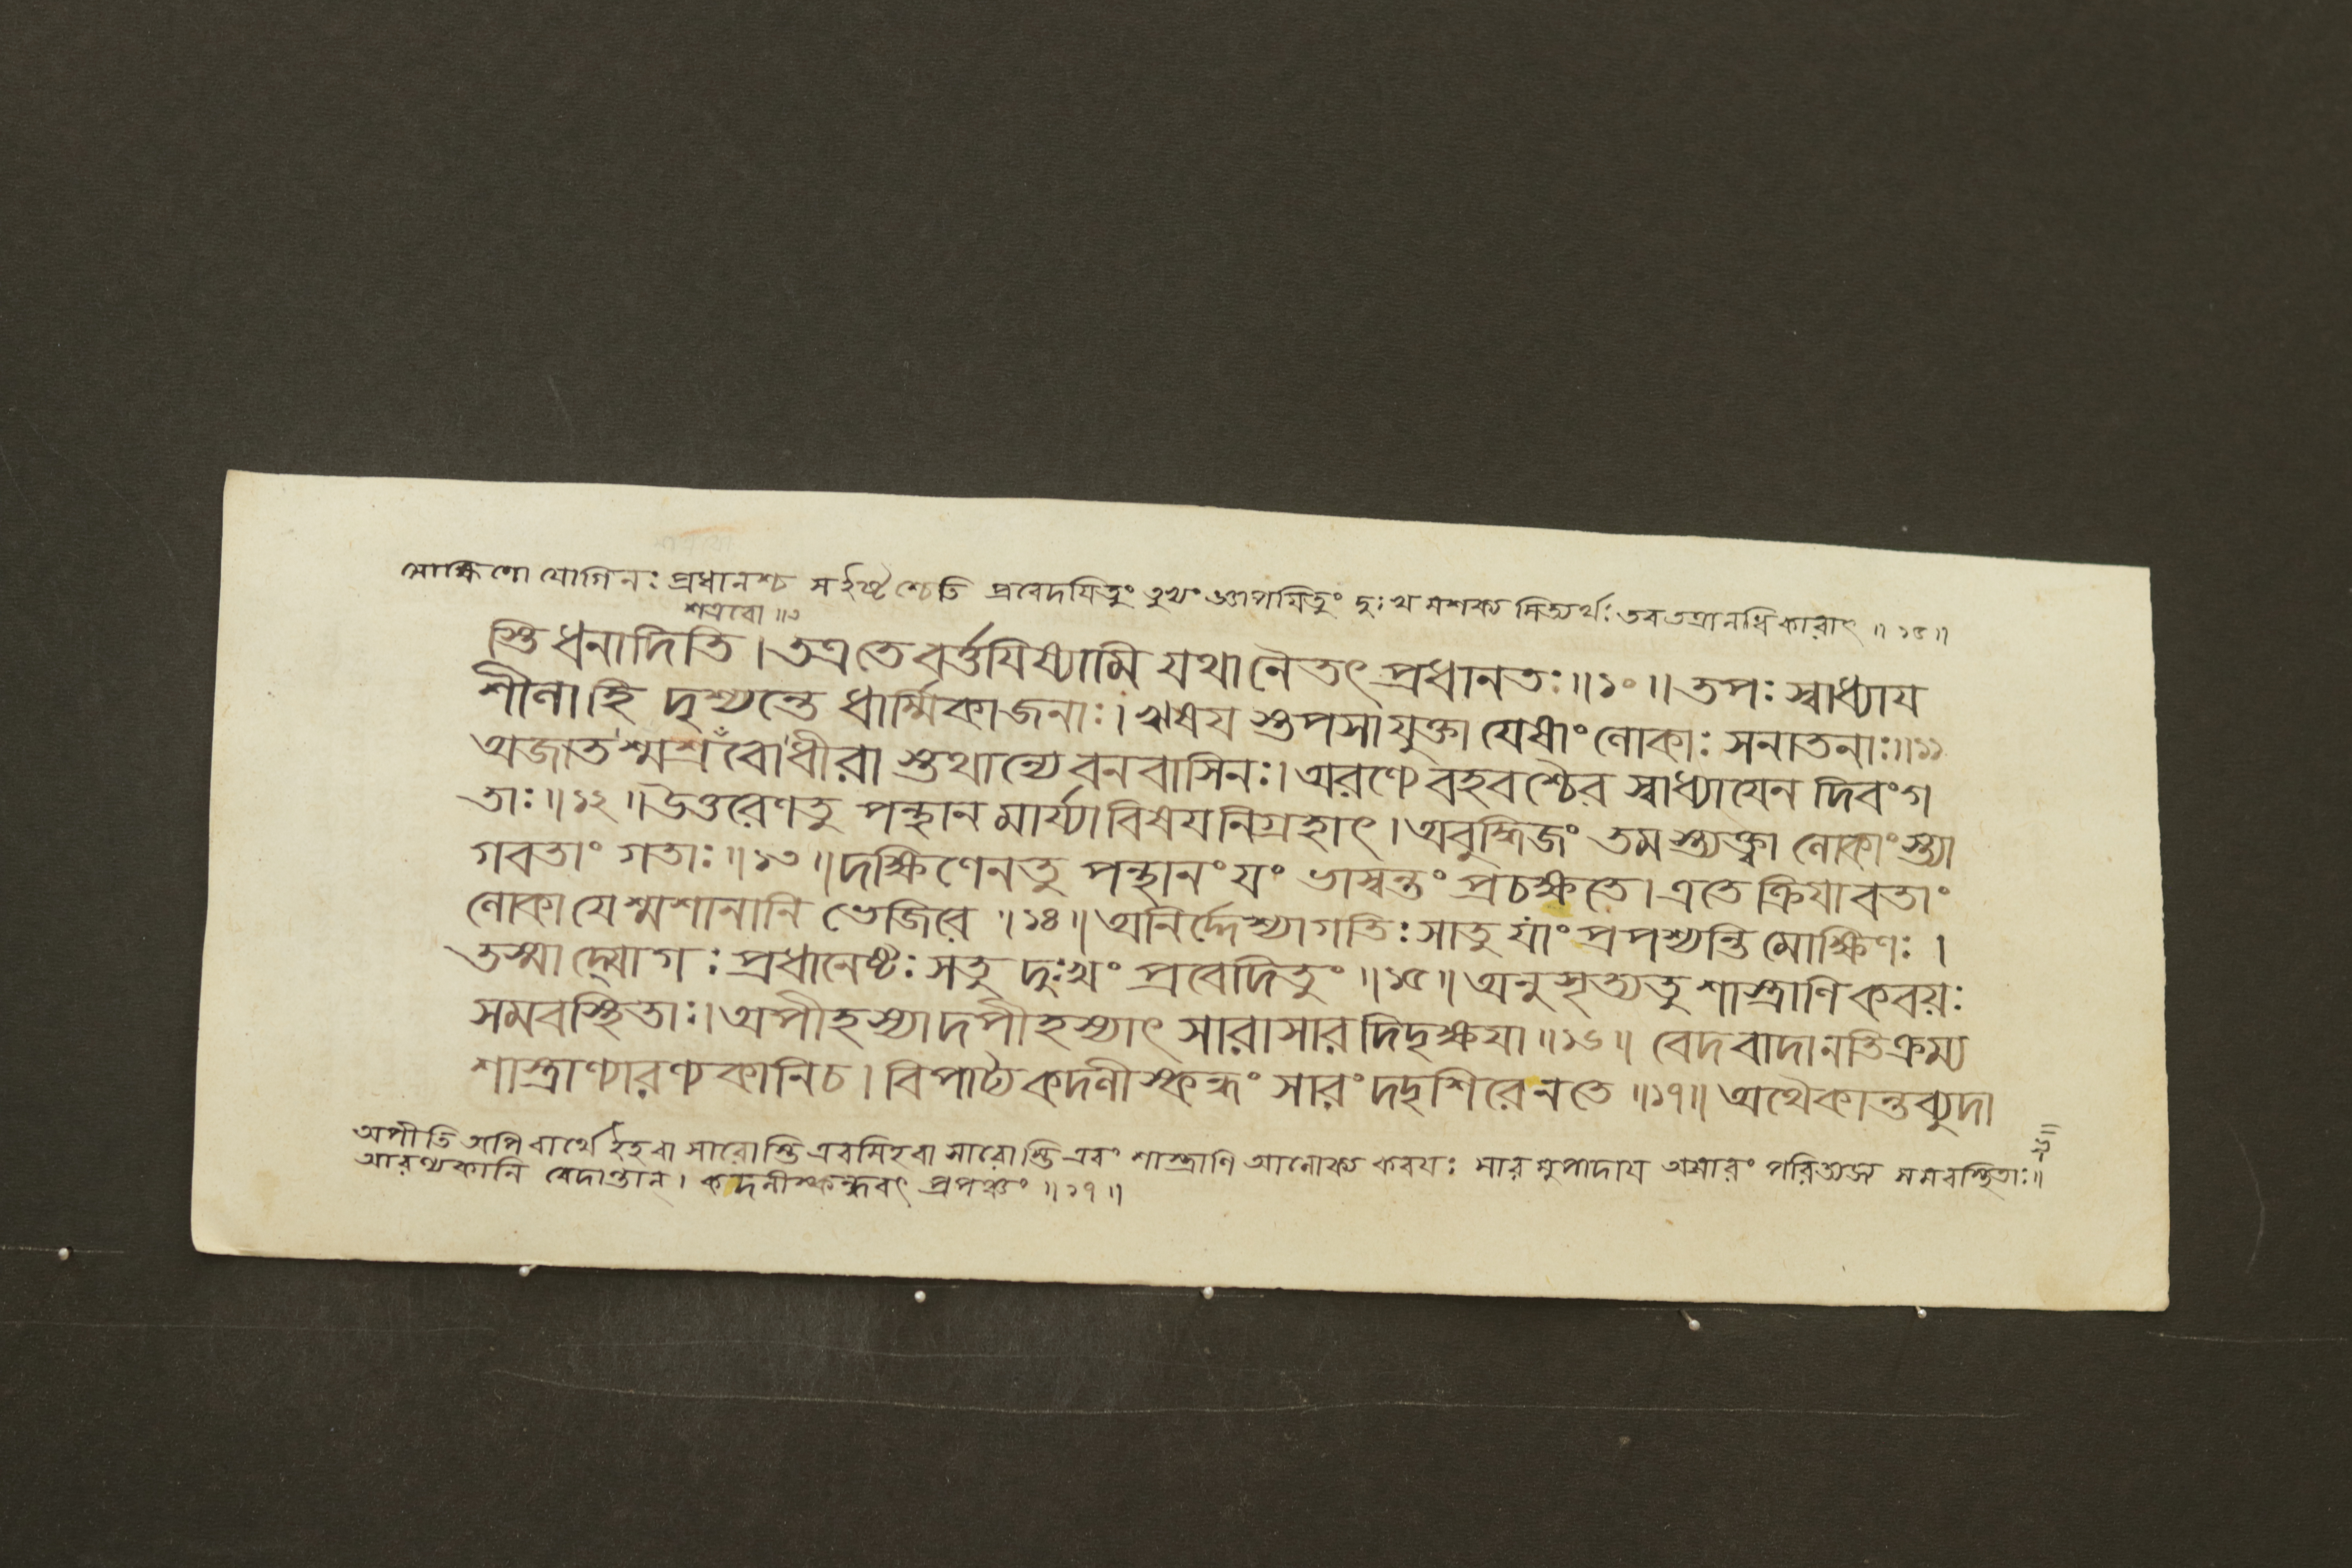 মোক্ষিণো যোগিনঃ প্রধানশ্চ স ইষ্টশ্চেতি প্রবেদযিতুং জ্ঞাপযিতুং দুঃখমশক্যমিত্যর্থঃ তব তত্রানধিকারাৎ ॥ ১৫॥
শত্রবো ॥৩
স্তি ধনাদিতি । তত্রতে বর্ত্তযিষ্যামি যথা নৈতৎ প্রধানতঃ॥১০॥ তপঃ স্বাধ্যায
শীলাহি দৃশ্যন্তে ধার্ম্মিকাজনাঃ। ঋষয স্তপসাযুক্তা যেষাং লোকাঃ সনাতনাঃ॥১১
অজাতশ্মশ্রবোধীরা স্তথান্যে বনবাসিনঃ। অরণ্যে বহবশ্চৈব স্বাধ্যাযেন দিবংগ
তাঃ॥১২॥ উত্তরেণতু পন্থান মার্য্যাবিষযনিগ্রহাৎ। অবুদ্ধিজং তমস্ত্যক্ত্বা লোকাংস্ত্যা
গবতাং গতাঃ॥১৩॥ দক্ষিণেনতু পন্থানং যং ভাস্বন্তং প্রচক্ষতে। এতে ক্রিযাবতাং
লোকাযেশ্মশানানি ভেজিরে ॥১৪॥ অনির্দ্দেশ্যাগতিঃ সাতু যাং প্রপশ্যন্তি মোক্ষিণঃ।
তস্মাদ্যোগঃ প্রধানেষ্টঃ সতু দুঃখং প্রবেদিতুং ॥১৫॥ অনুসৃত্যতু শাস্ত্রাণি কবয়ঃ
সমবস্থিতাঃ। অপীহস্যাদপীহস্যাৎ সারাসারদিদৃক্ষযা॥১৬॥ বেদবাদানতিক্রম্য
শাস্ত্রাণ্যারণ্যকানিচ। বিপাঠ্য কদলীস্কন্ধং সারং দদৃশিরেনতে ॥১৭॥ অথৈকান্তব্যুদা
অপীতি অপি বার্থে ইহবা সারোস্তি এবমিহবা সারোস্তি এবং শাস্ত্রাণি আলোক্য কবযঃ সারমুপাদায অসারং পরিত্যজ্য সমবস্থিতাঃ॥ ১৬॥
আরণ্যকানি বেদান্তান্। কদলীস্কন্ধবৎ প্রপঞ্চং ॥১৭॥